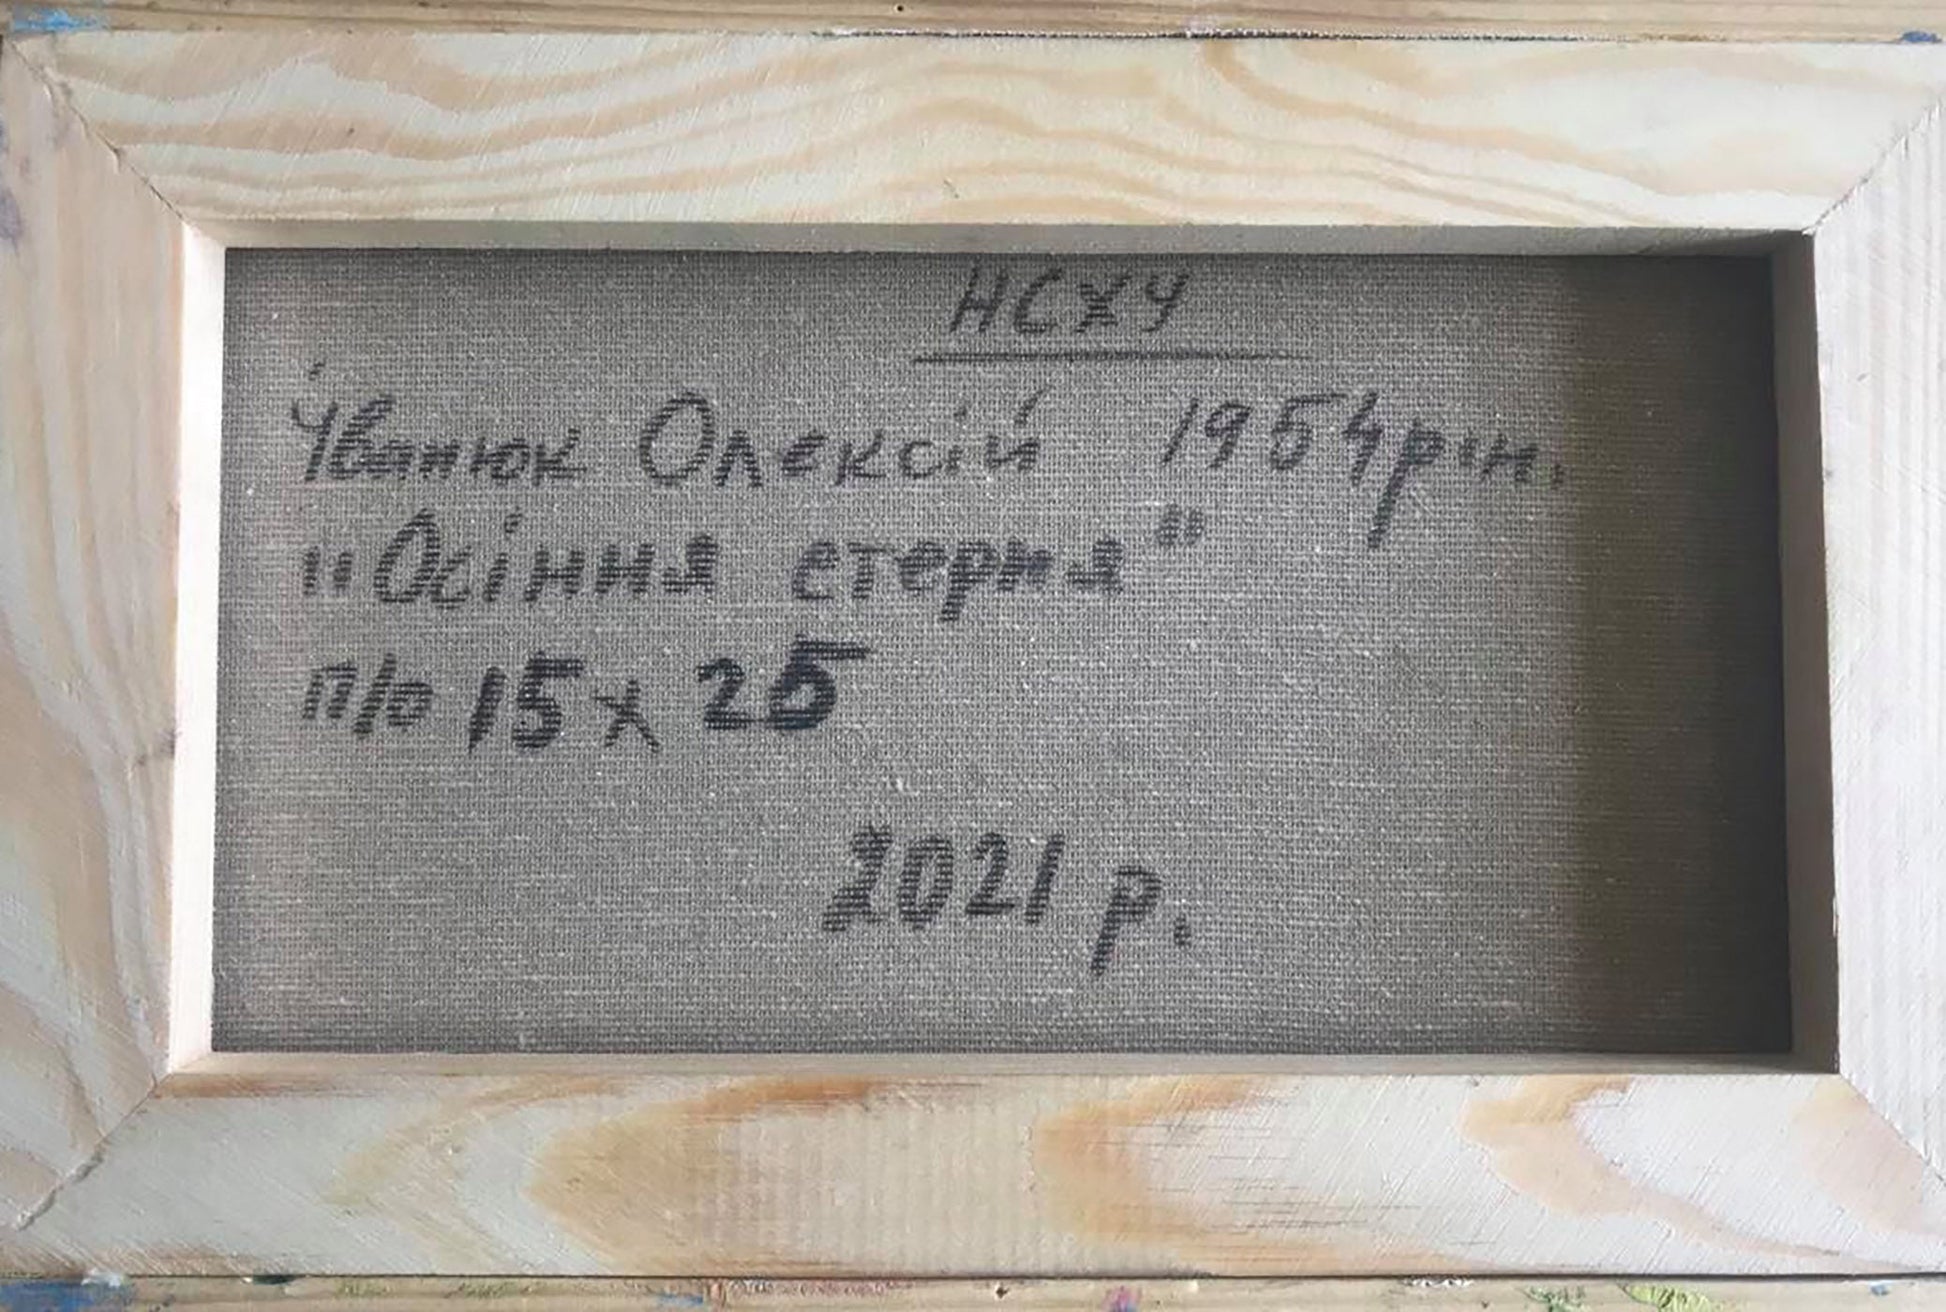 НСХУ
Іванюк Олексій 1954 р.н.
"Осіння стерня"
п/о 15 х 25
2021 р.